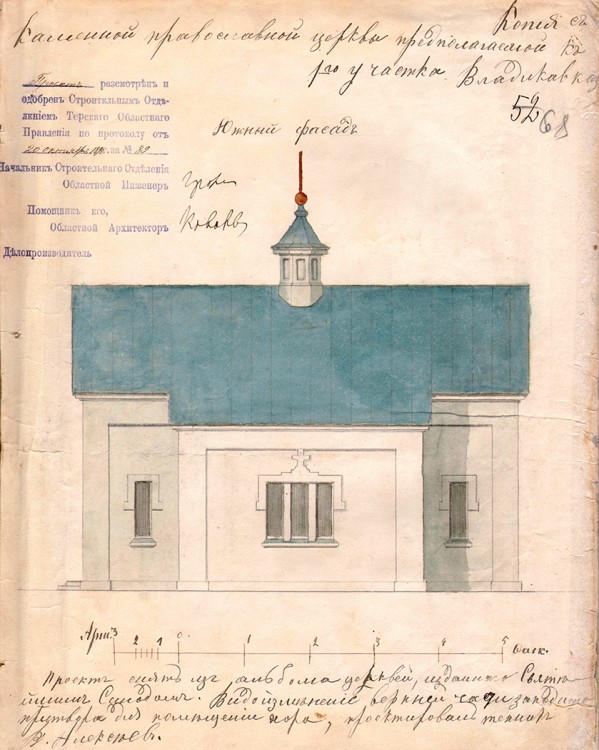 Копия съ
Каменной православной церкви предполагаемой въ
1го участка Владикавказ
Проектъ разсмотрѣн и
одобрен Строительным Отдѣ-
ленiем Терскаго Областнаго
Правленiя по протоколу от
20 октября за № 89
Начальник Строительнаго Отдѣленiя
Областной Инженер
Помощник его,
Областной Архитектор
Дѣлопроизводитель
52
68
Южный фасадъ
Арш. 3 2 1 0 1 2 3 4 5 саж.
Проектъ снятъ изъ альбома церквей, изданнаго Святѣ-
йшимъ Синодомъ. Видоизмѣненiе верхней части западнаго
притвора для помѣщенiя хора, проектировалъ техникъ
Алексѣевъ.